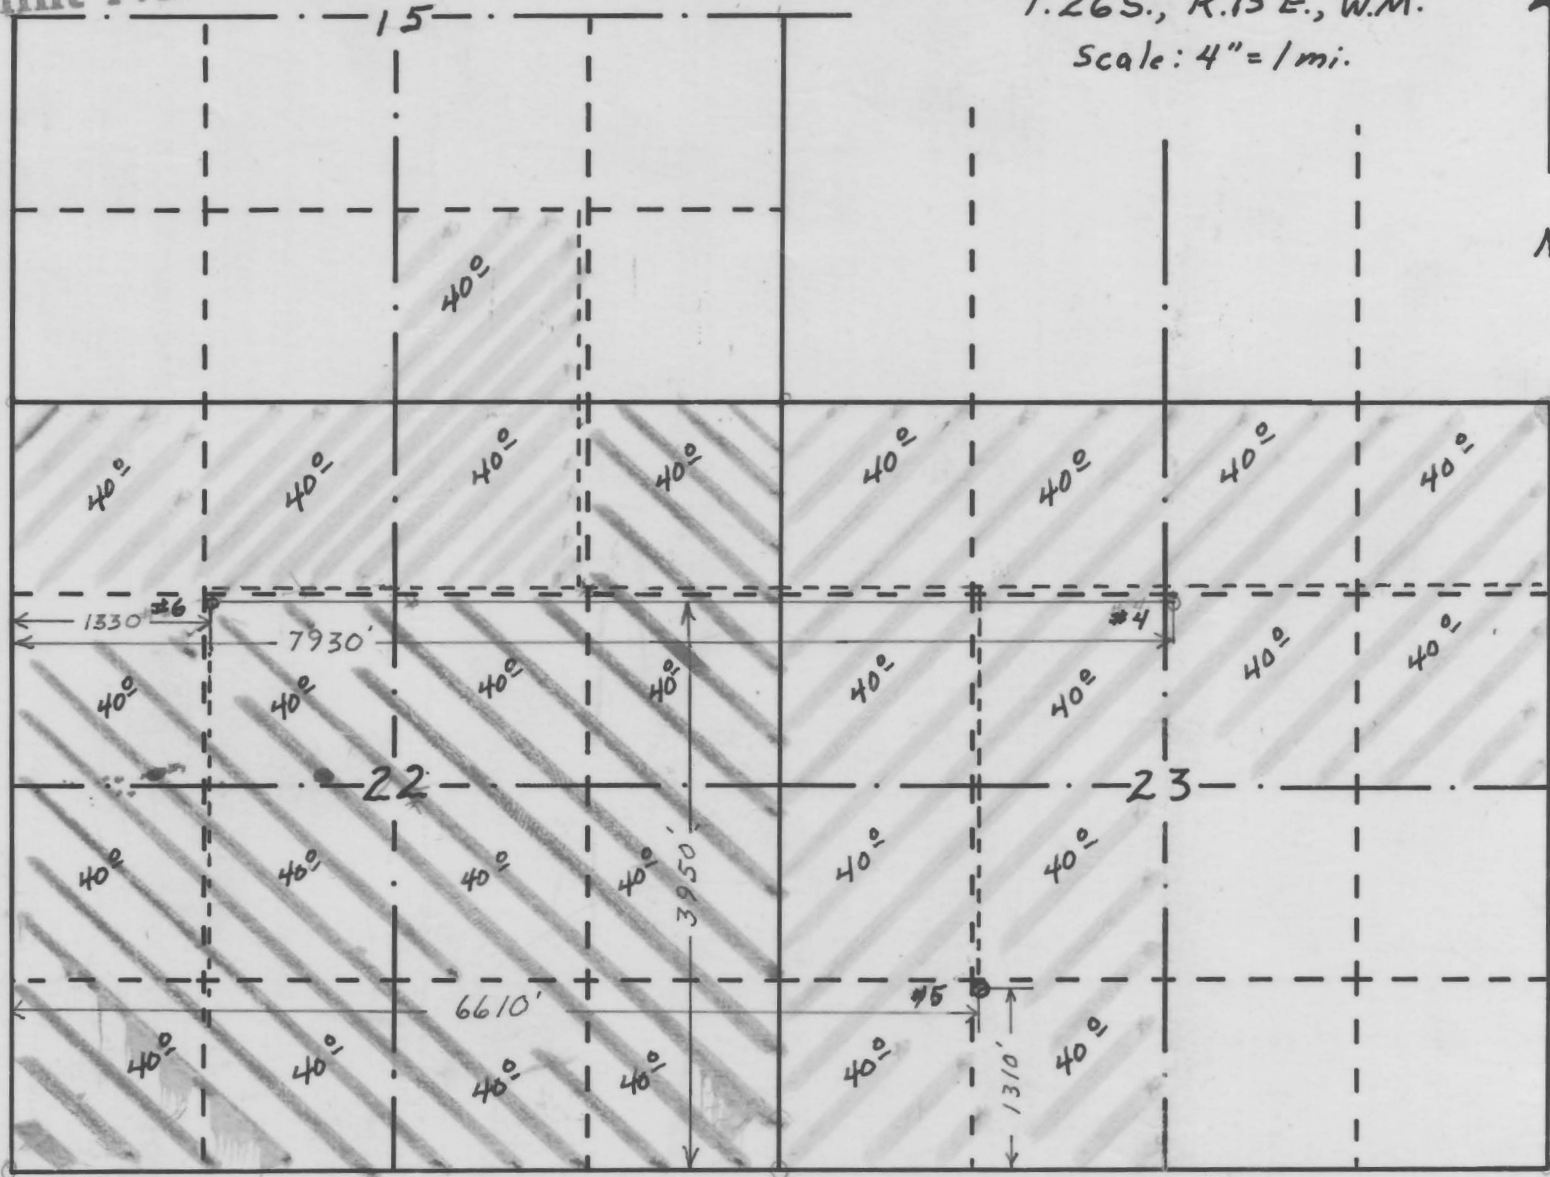 15
T.26S., R.15E., W.M.
Scale: 4"=1mi.
N
40º
40º 40º 40º 40º 40º 40º 40º 40º
1330' #6 #4
7930'
40º 40º 40º 40º 40º 40º 40º 40º
22 23
3950'
40º 40º 40º 40º 40º 40º
#5
6610'
1310'
40º 40º 40º 40º 40º 40º